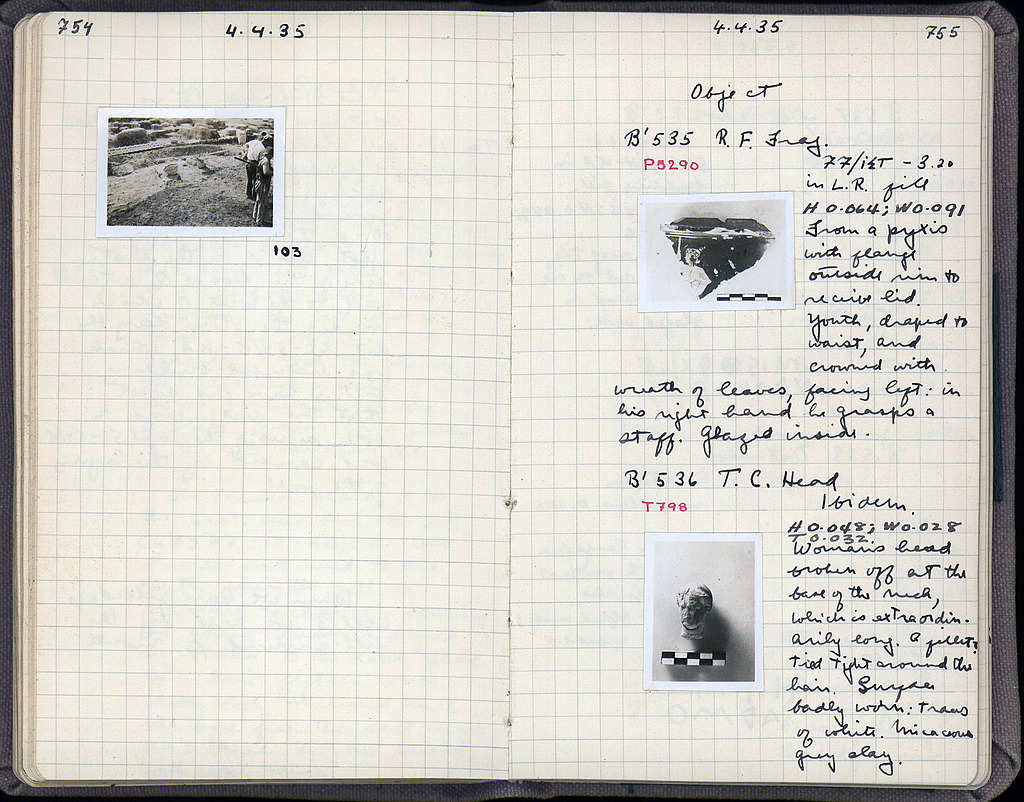 754
4.4.35
103
4.4.35
755
Object
B' 535 R. F. Frag.
P5290
77/ΙΣΤ - 3.20
in L.R. fill
H 0.064; W 0.091
From a pyxis
with flange
outside rim to
receive lid.
Youth, draped to
waist, and
crowned with
wreath of leaves, facing left: in
his right hand he grasps a
staff. Glazed inside.
B' 536 T. C. Head
T798
Ibidem.
H 0.048; W 0.028
T 0.032.
Woman's head
broken off at the
base of the neck,
which is extraordin-
arily long. A fillet?
tied tight around the
hair. Surface
badly worn: traces
of white. Micaceous
grey clay.